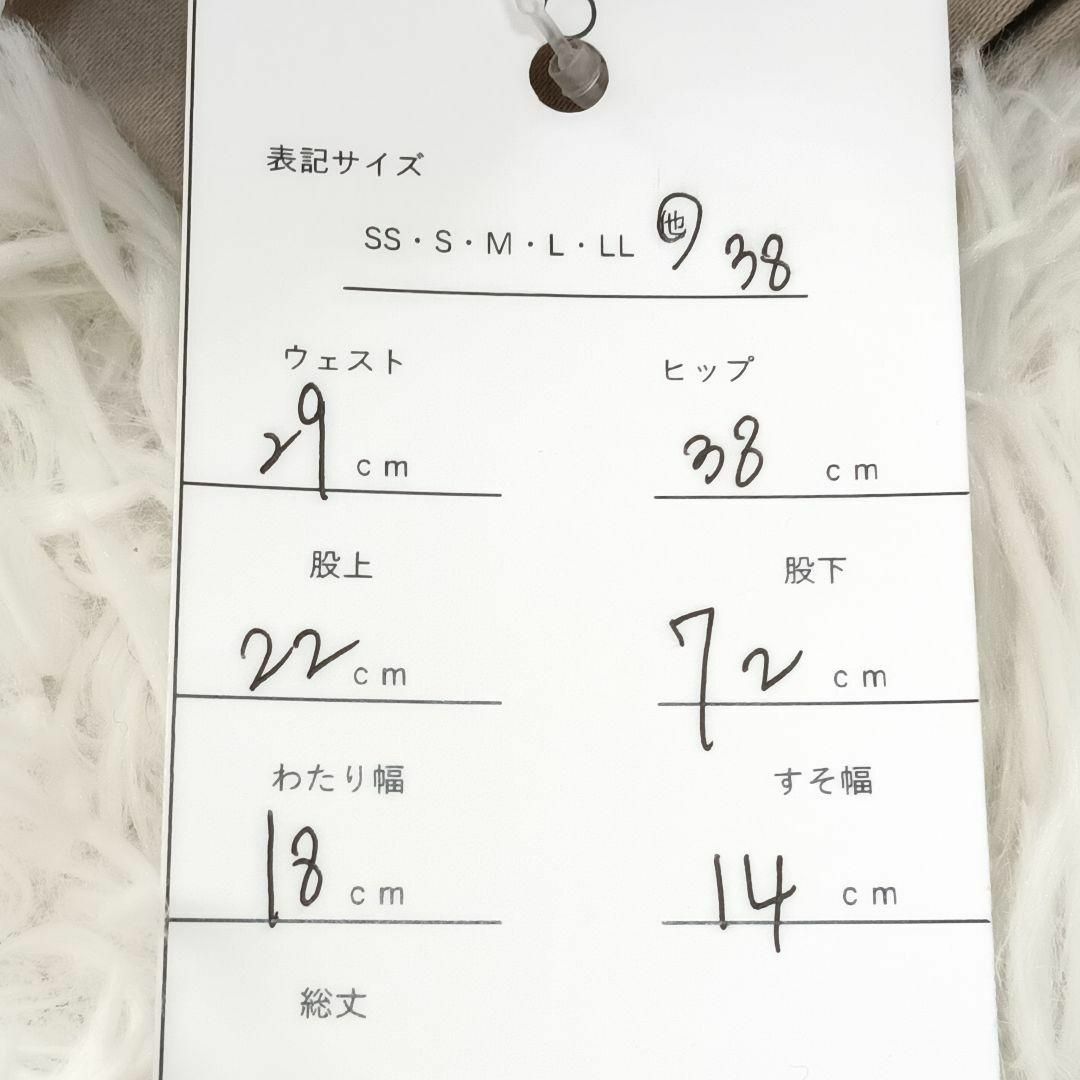 表記サイズ
SS・S・M・L・LL 他 38
ウェスト ヒップ
29 cm 38 cm
股上 股下
22 cm 72 cm
わたり幅 すそ幅
18 cm 14 cm
総丈